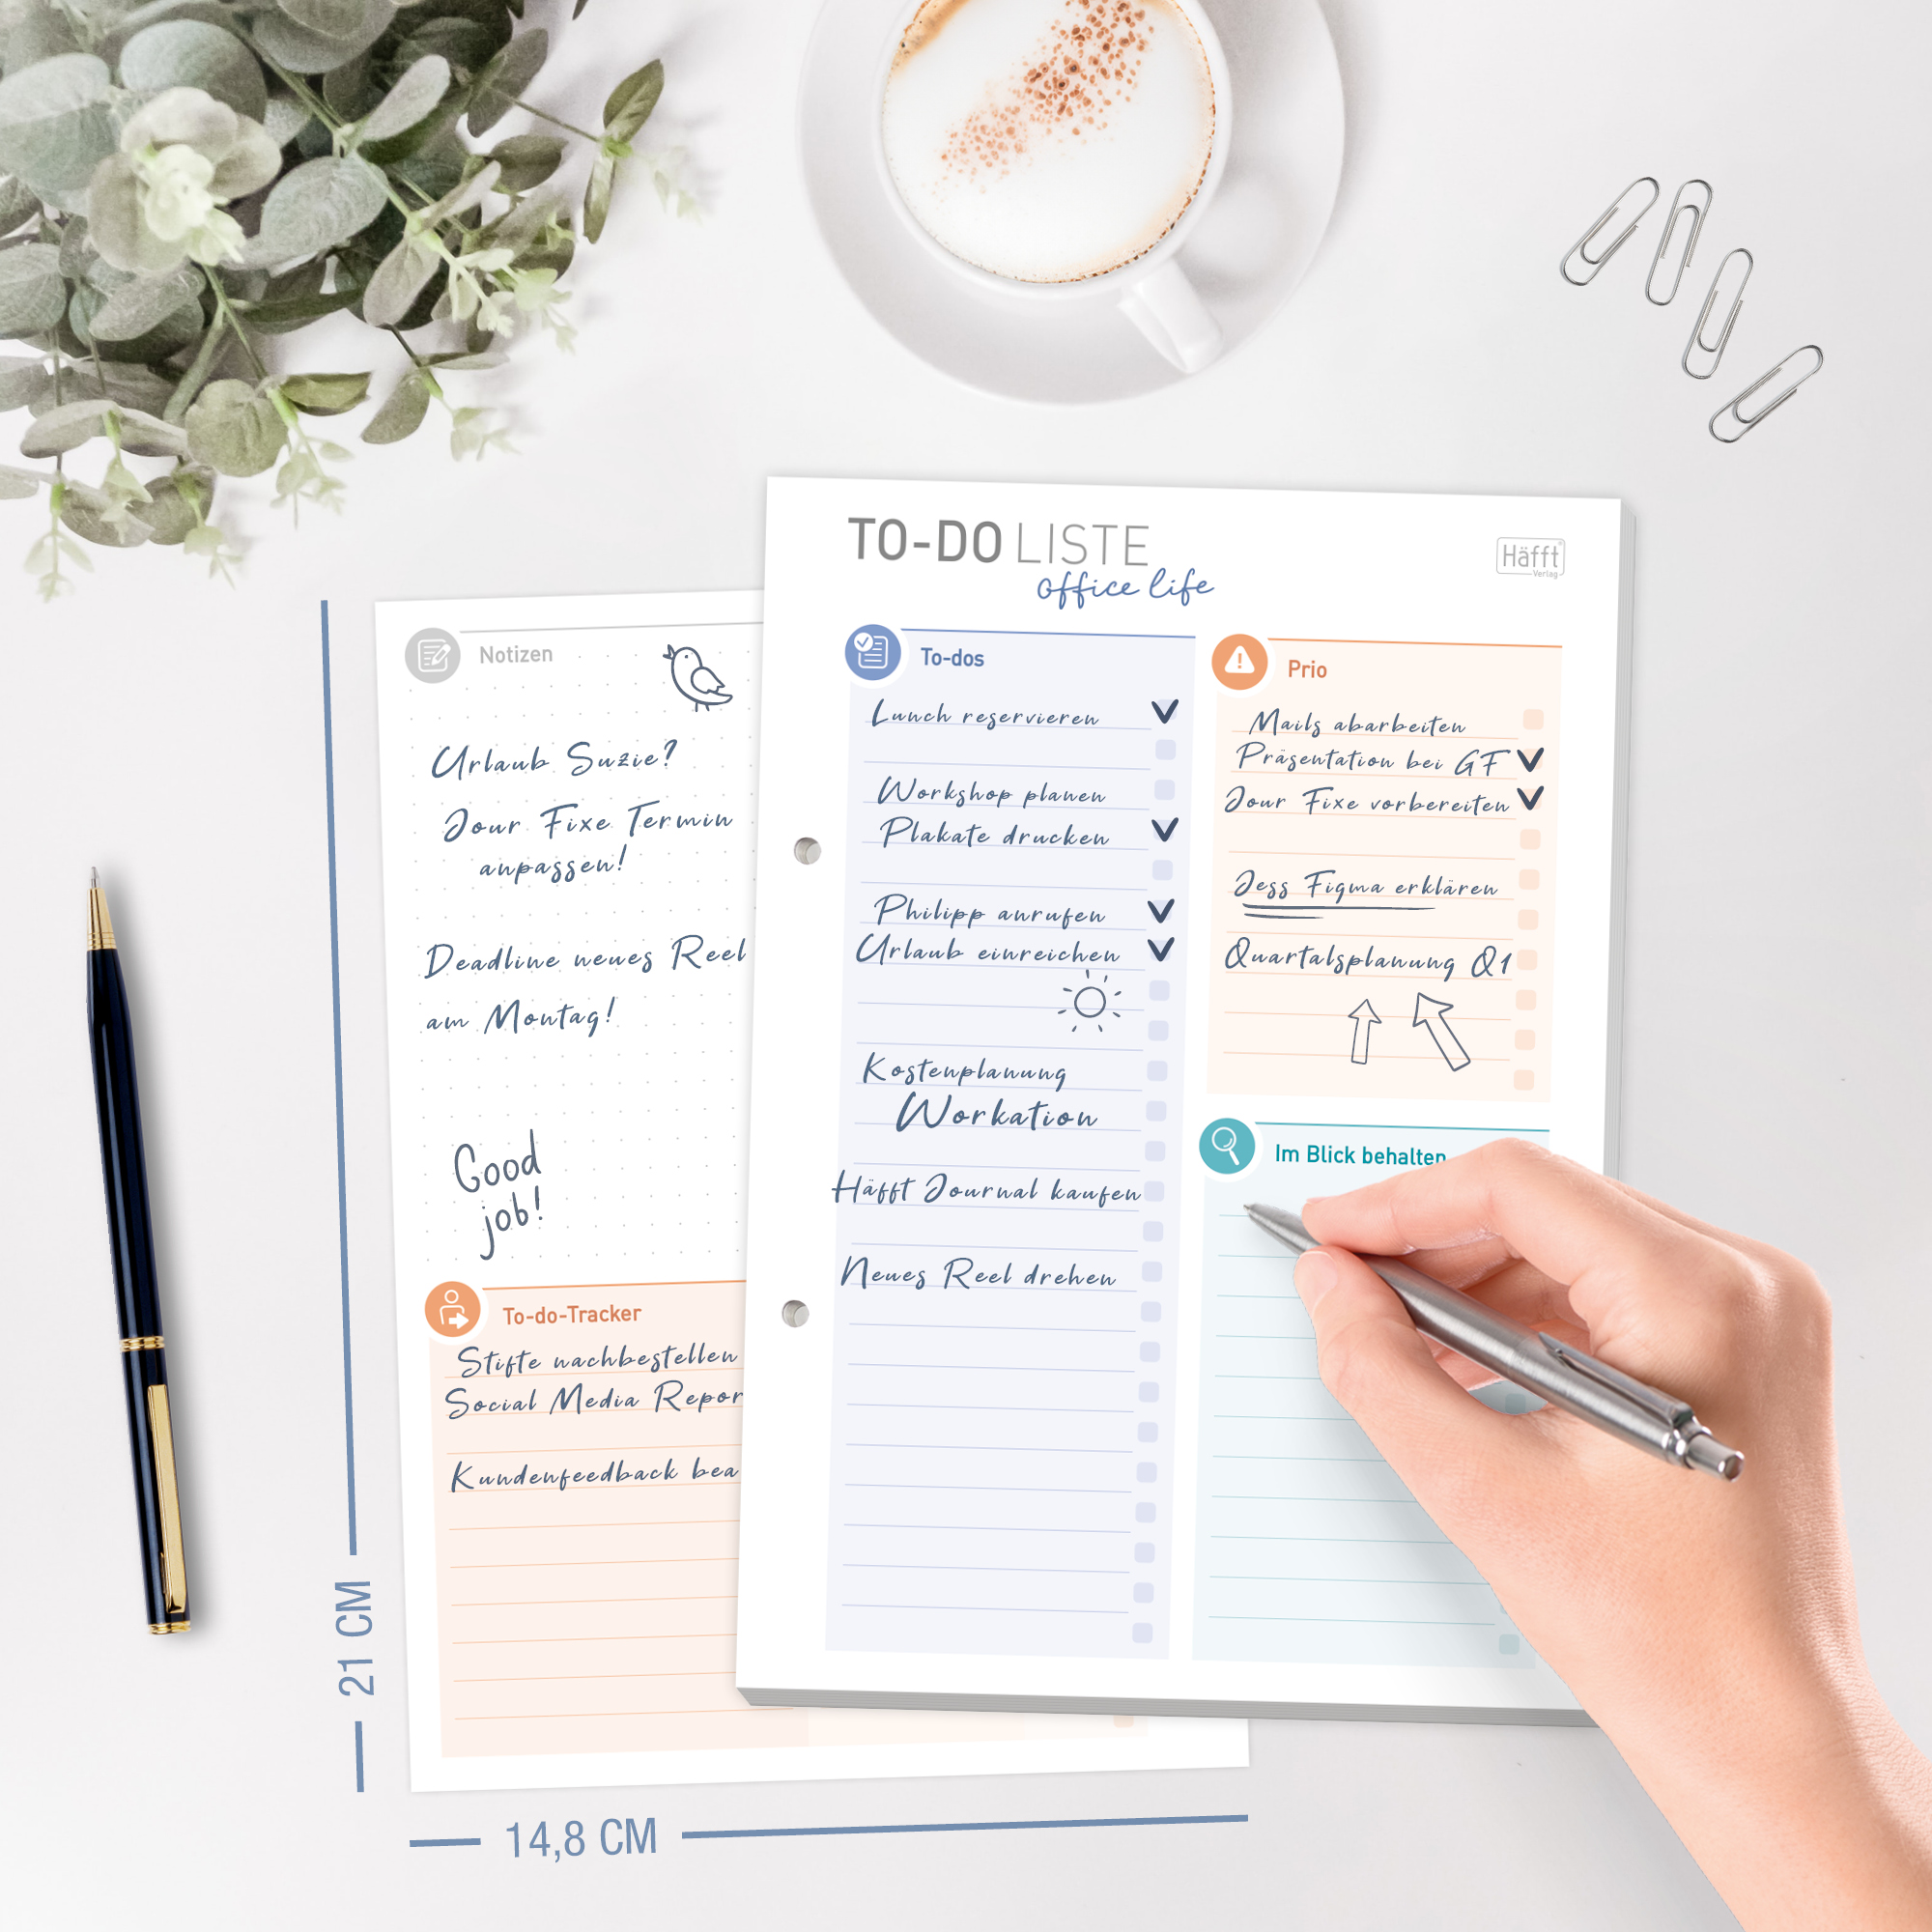 TO-DO LISTE
office life
Häfft
Verlag
To-dos
Lunch reservieren
Workshop planen
Plakate drucken
Philipp anrufen
Urlaub einreichen
Kostenplanung
Workation
Häfft Journal kaufen
Neues Reel drehen
Prio
Mails abarbeiten
Präsentation bei GF
Jour Fixe vorbereiten
Jess Figma erklären
Quartalsplanung Q1
Im Blick behalten
Notizen
Urlaub Suzie?
Jour Fixe Termin
anpassen!
Deadline neues Reel
am Montag!
Good
job!
To-do-Tracker
Stifte nachbestellen
Social Media Repor
Kundenfeedback bea
21 CM
14,8 CM